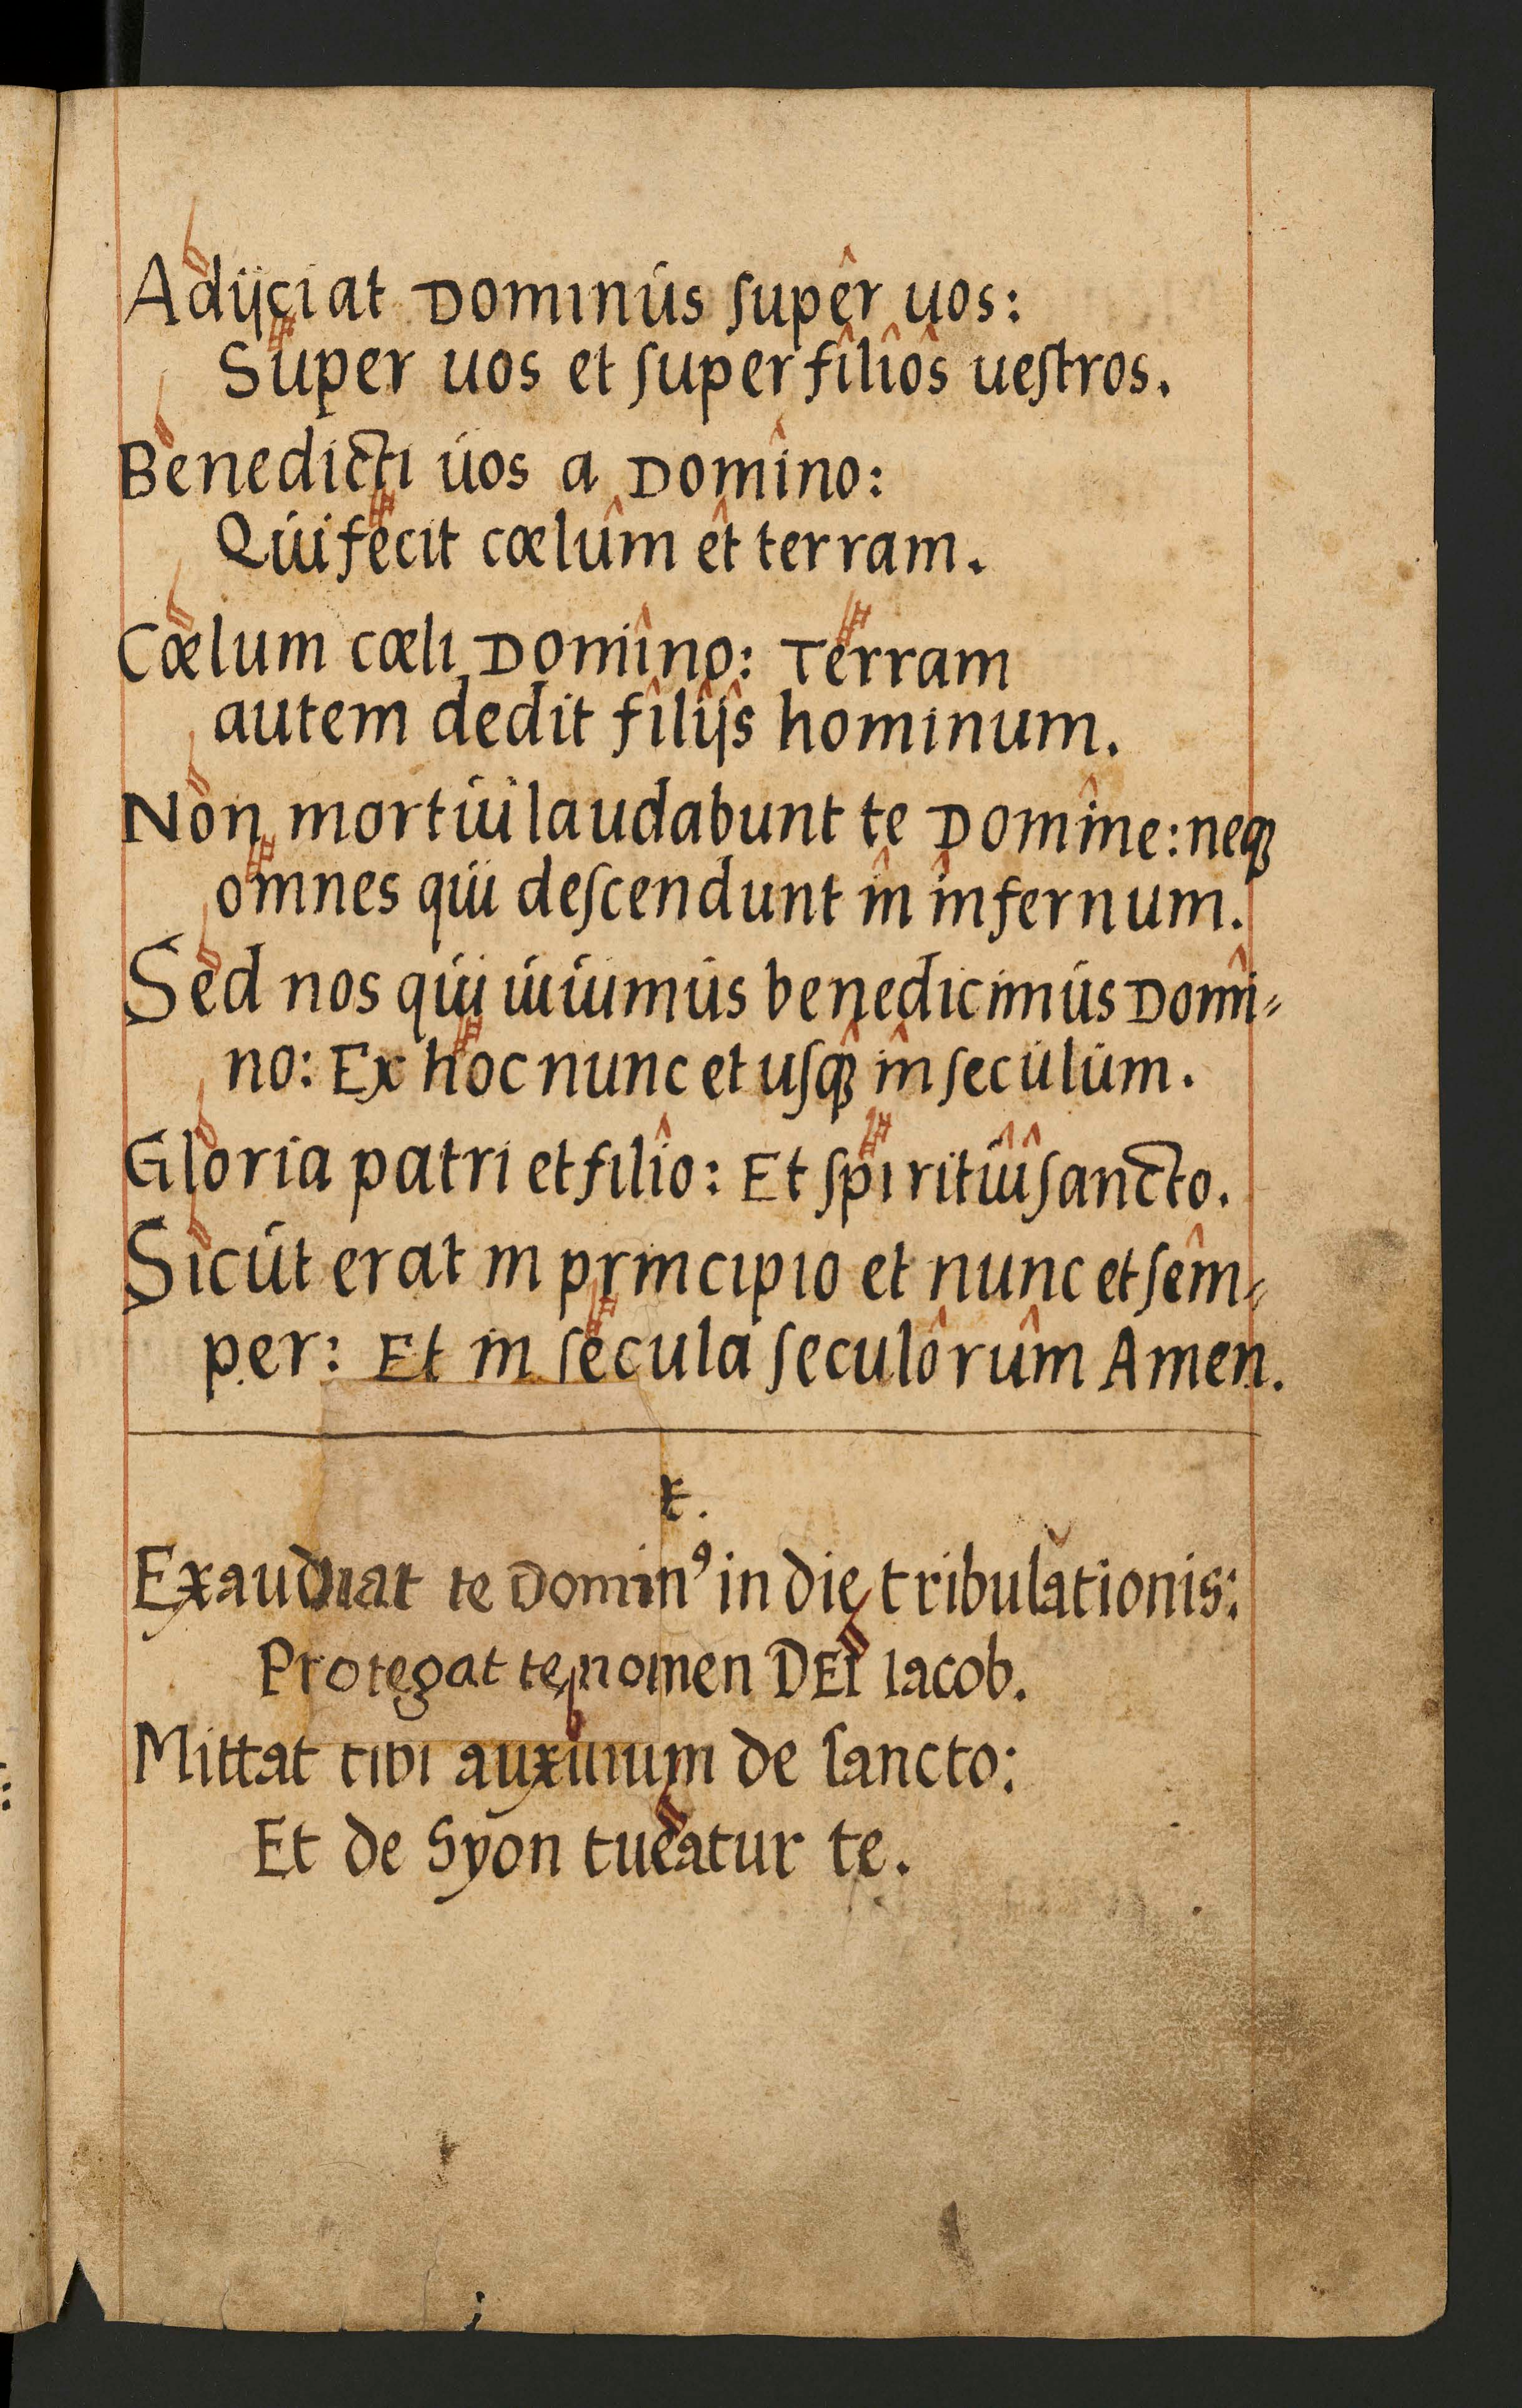 Adijciat Dominus ſuper uos:
Super uos et ſuper filios ueſtros.
Benedicti uos a Domino:
Qui fecit cœlum et terram.
Cœlum cœli Domino: Terram
autem dedit filijs hominum.
Non mortui laudabunt te Domine: neqꝫ
omnes qui deſcendunt in infernum.
Sed nos qui uiuimus benedicimus Domi⸗
no: Ex hoc nunc et uſqꝫ in ſeculum.
Gloria patri et filio: Et ſpiritui ſancto.
Sicut erat in principio et nunc et ſem⸗
per: Et in ſecula ſeculorum Amen.
Exaudiat te Dominꝰ in die tribulationis:
Protegat te nomen DEI Iacob.
Mittat tibi auxilium de ſancto:
Et de Syon tueatur te.